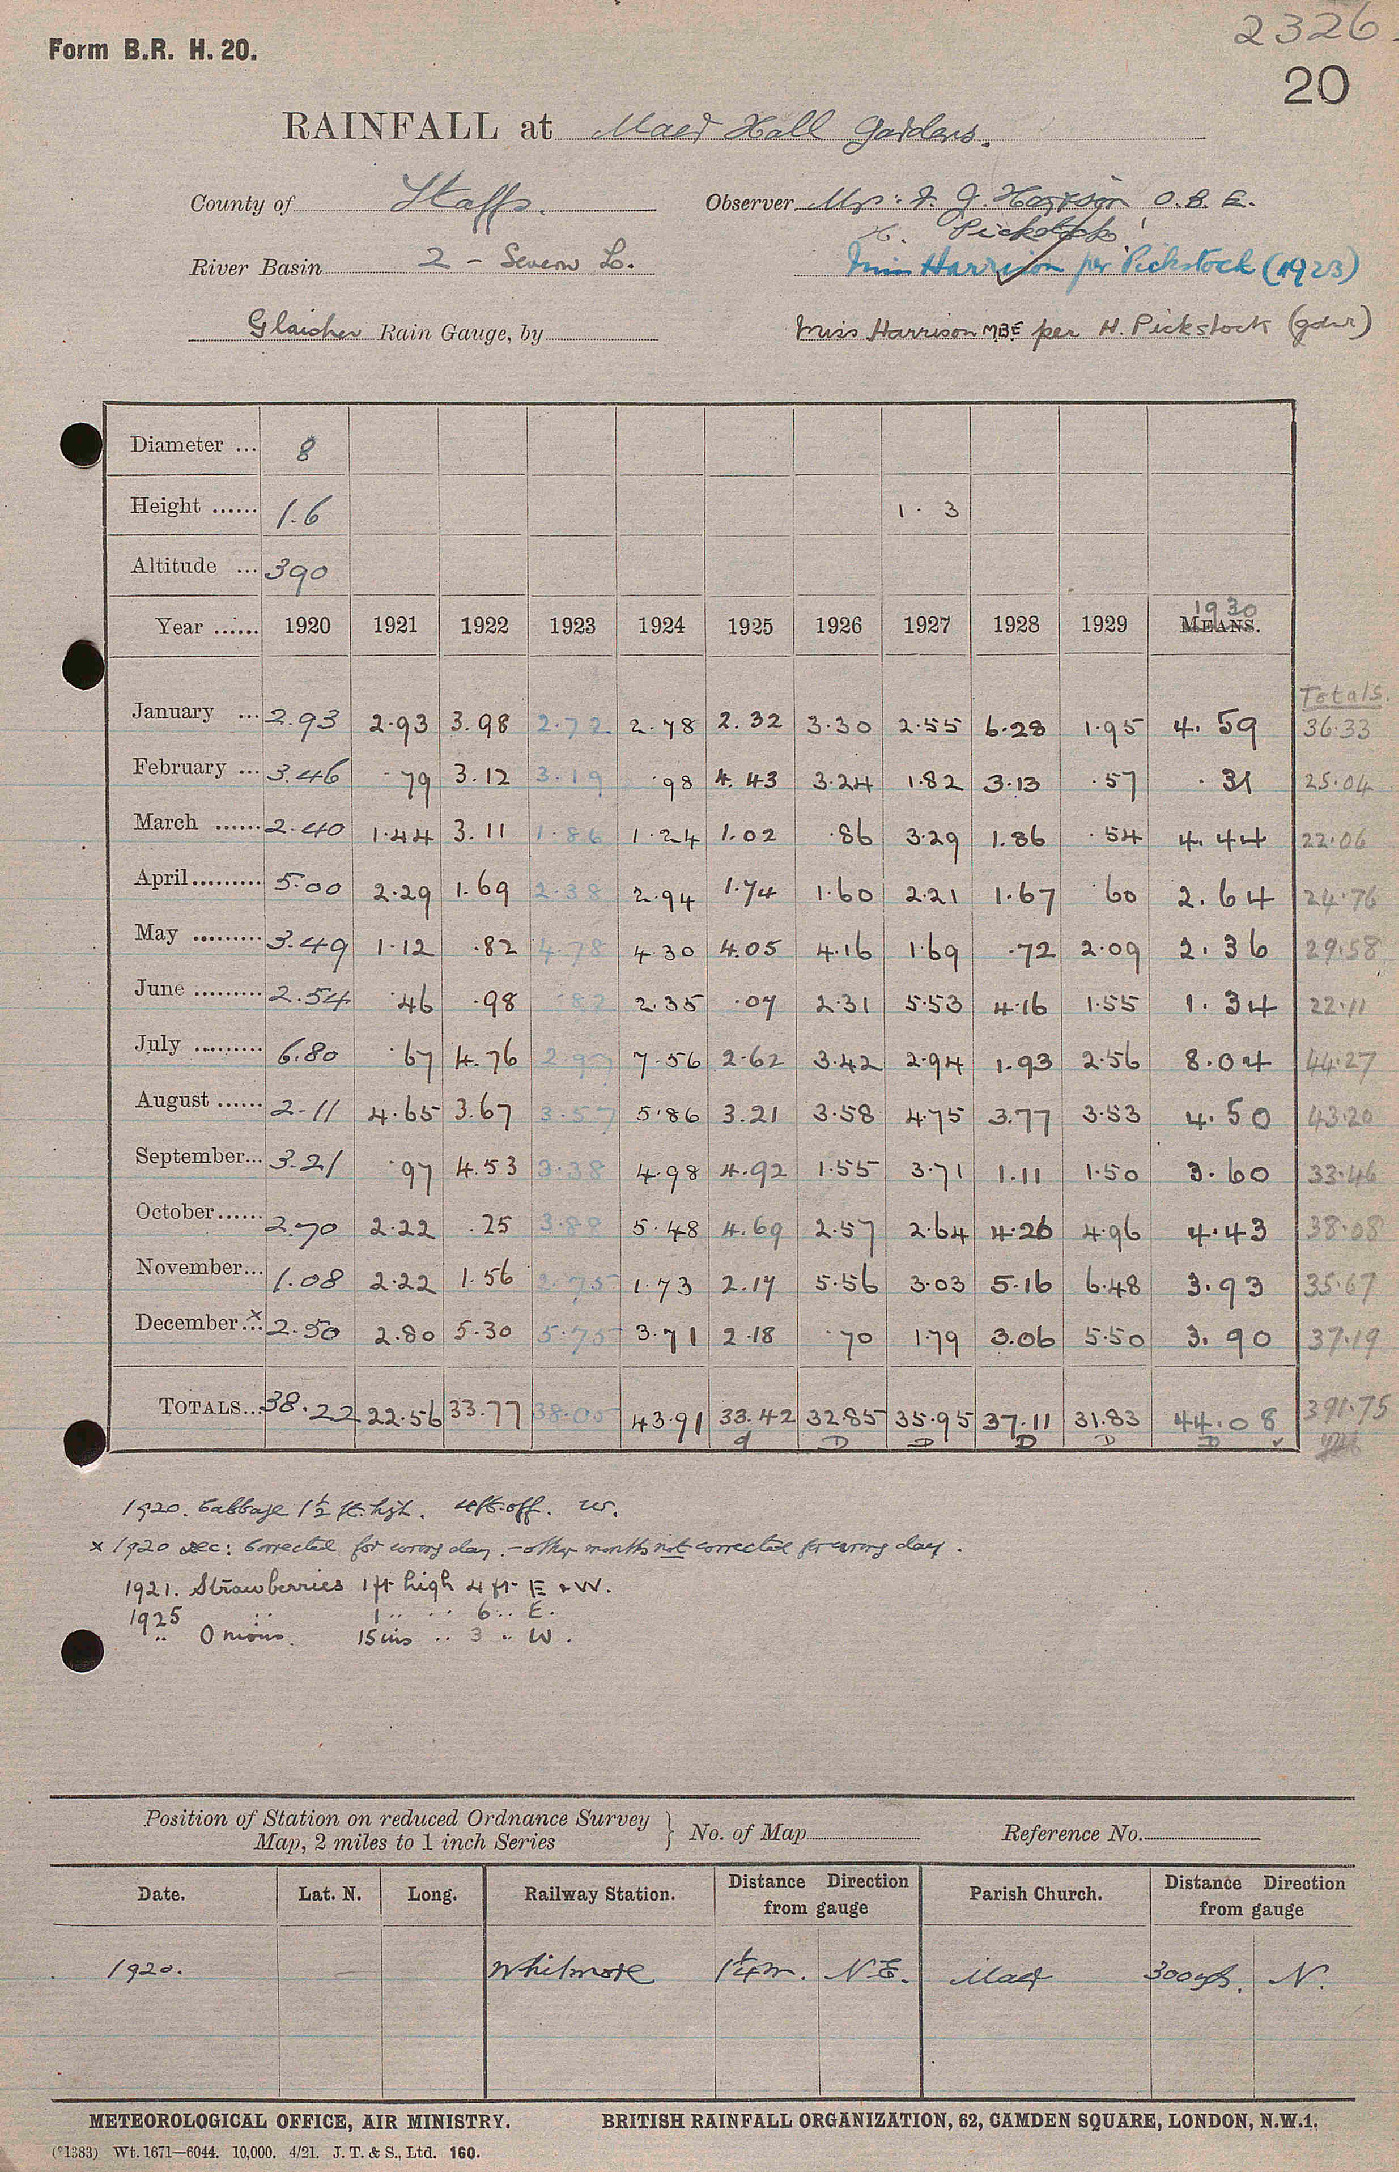 2326.
Form B.R. H. 20.
20
RAINFALL at Maer Hall Gardens.
County of Staffs. Observer Mrs. F. J. Harrison, O.B.E.
H. Pickstock
River Basin 2 - Severn L. Miss Harrison per Pickstock (1923)
Glaisher Rain Gauge, by Miss Harrison MBE per H. Pickstock (gdnr)
Diameter ... 8
Height ...... 1.6 1.3
Altitude ... 390
1930
Year ...... 1920 1921 1922 1923 1924 1925 1926 1927 1928 1929 MEANS.
Totals.
January ... 2.93 2.93 3.98 2.72 2.78 2.32 3.30 2.55 6.28 1.95 4.59 36.33
February ... 3.46 .79 3.12 3.19 .98 4.43 3.24 1.82 3.13 .57 .31 25.04
March ...... 2.40 1.44 3.11 1.86 1.24 1.02 .86 3.29 1.86 .54 4.44 22.06
April......... 5.00 2.29 1.69 2.38 2.94 1.74 1.60 2.21 1.67 .60 2.64 24.76
May ......... 3.49 1.12 .82 4.78 4.30 4.05 4.16 1.69 .72 2.09 2.36 29.58
June ......... 2.54 .46 .98 .82 2.35 .07 2.31 5.53 4.16 1.55 1.34 22.11
July ......... 6.80 .67 4.76 2.97 7.56 2.62 3.42 2.94 1.93 2.56 8.04 44.27
August ...... 2.11 4.65 3.67 3.57 5.86 3.21 3.58 4.75 3.77 3.53 4.50 43.20
September... 3.21 .97 4.53 3.38 4.98 4.92 1.55 3.71 1.11 1.50 3.60 33.46
October...... 2.70 2.22 .25 3.88 5.48 4.69 2.57 2.64 4.26 4.96 4.43 38.08
November... 1.08 2.22 1.56 2.75 1.73 2.17 5.56 3.03 5.16 6.48 3.93 35.67
December...x 2.50 2.80 5.30 5.75 3.71 2.18 .70 1.79 3.06 5.50 3.90 37.19
TOTALS... 38.22 22.56 33.77 38.05 43.91 33.42 32.85 35.95 37.11 31.83 44.08 391.75
D D D D D
1920. Cabbage 1½ ft. high. 4ft. off. W.
x 1920 Dec: Corrected for wrong day. - other months not corrected for wrong day.
1921. Strawberries 1 ft high 4 ft E & W.
1925 " 1 " " 6 " E.
" Onions. 15 ins " 3 " W.
Position of Station on reduced Ordnance Survey
Map, 2 miles to 1 inch Series } No. of Map Reference No.
Date. Lat. N. Long. Railway Station. Distance Direction from gauge Parish Church. Distance Direction from gauge
1920. Whitmore 1¼ m. N.E. Maer 300 yds. N.
METEOROLOGICAL OFFICE, AIR MINISTRY. BRITISH RAINFALL ORGANIZATION, 62, CAMDEN SQUARE, LONDON, N.W.1.
(*1383) Wt. 1671—6044. 10,000. 4/21. J. T. & S., Ltd. 160.